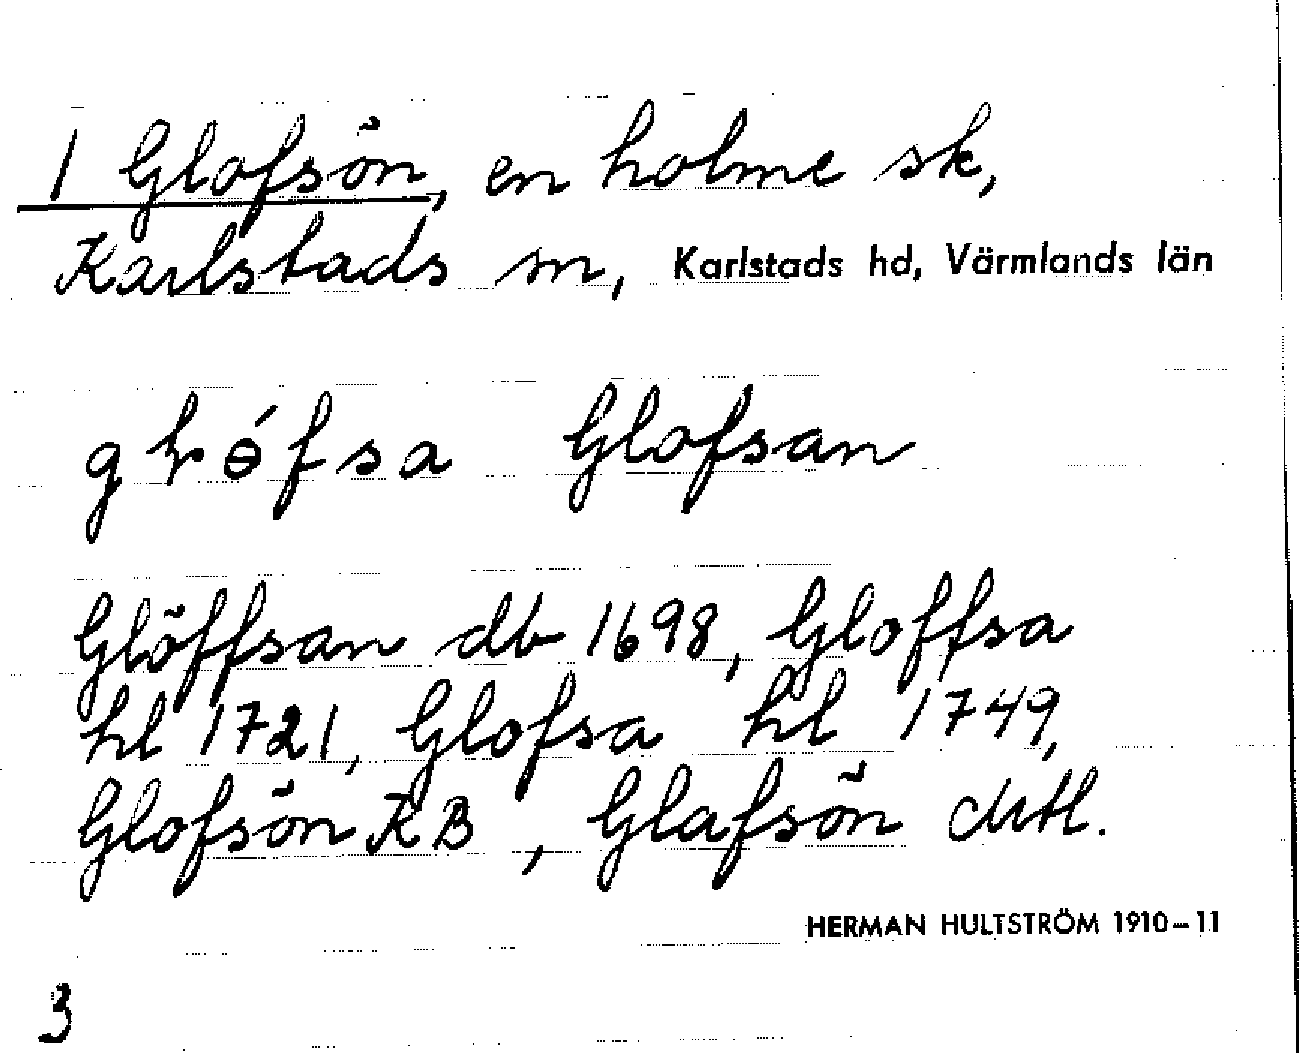 1 Glofsön, en holme sk,
Karlstads sn, Karlstads hd, Värmlands län
glɵ́fsa Glofsan
Glöffsan db 1698, Gloffsa
hl 1721, Glofsa hl 1749,
Glofsön KB, Glafsön
HERMAN HULTSTRÖM 1910–11
3